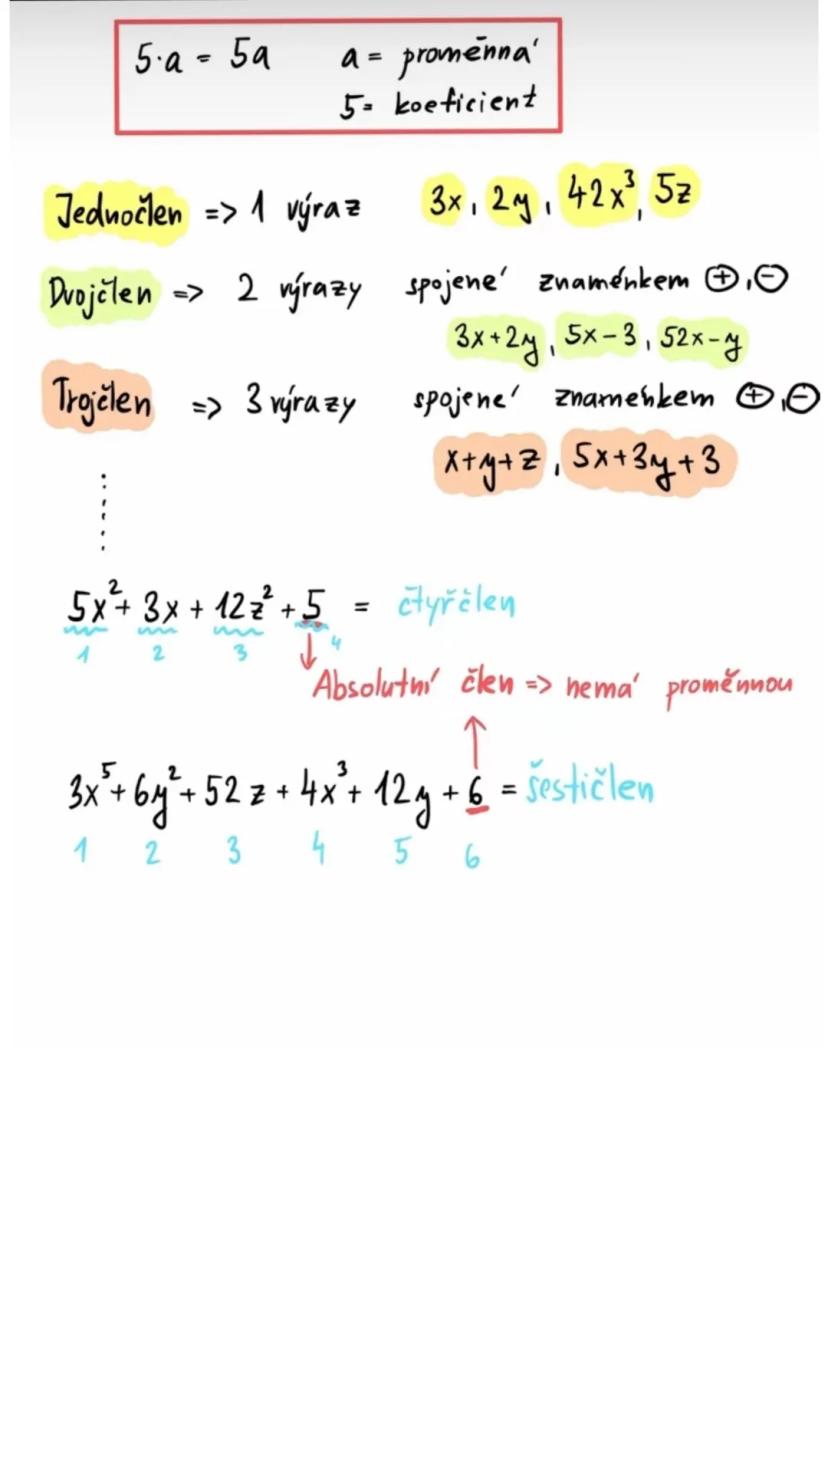 5·a = 5a a = proměnná
5= koeficient
Jednočlen => 1 výraz 3x, 2y, 42x³, 5z
Dvojčlen => 2 výrazy spojené znaménkem ⊕,⊖
3x+2y, 5x-3, 52x-y
Trojčlen => 3 výrazy spojené znaménkem ⊕,⊖
x+y+z, 5x+3y+3
5x²+ 3x + 12z² + 5 = čtyřčlen
1 2 3 4
Absolutní člen => nemá proměnnou
3x⁵+6y²+52z+4x³+12y+6 = šestičlen
1 2 3 4 5 6